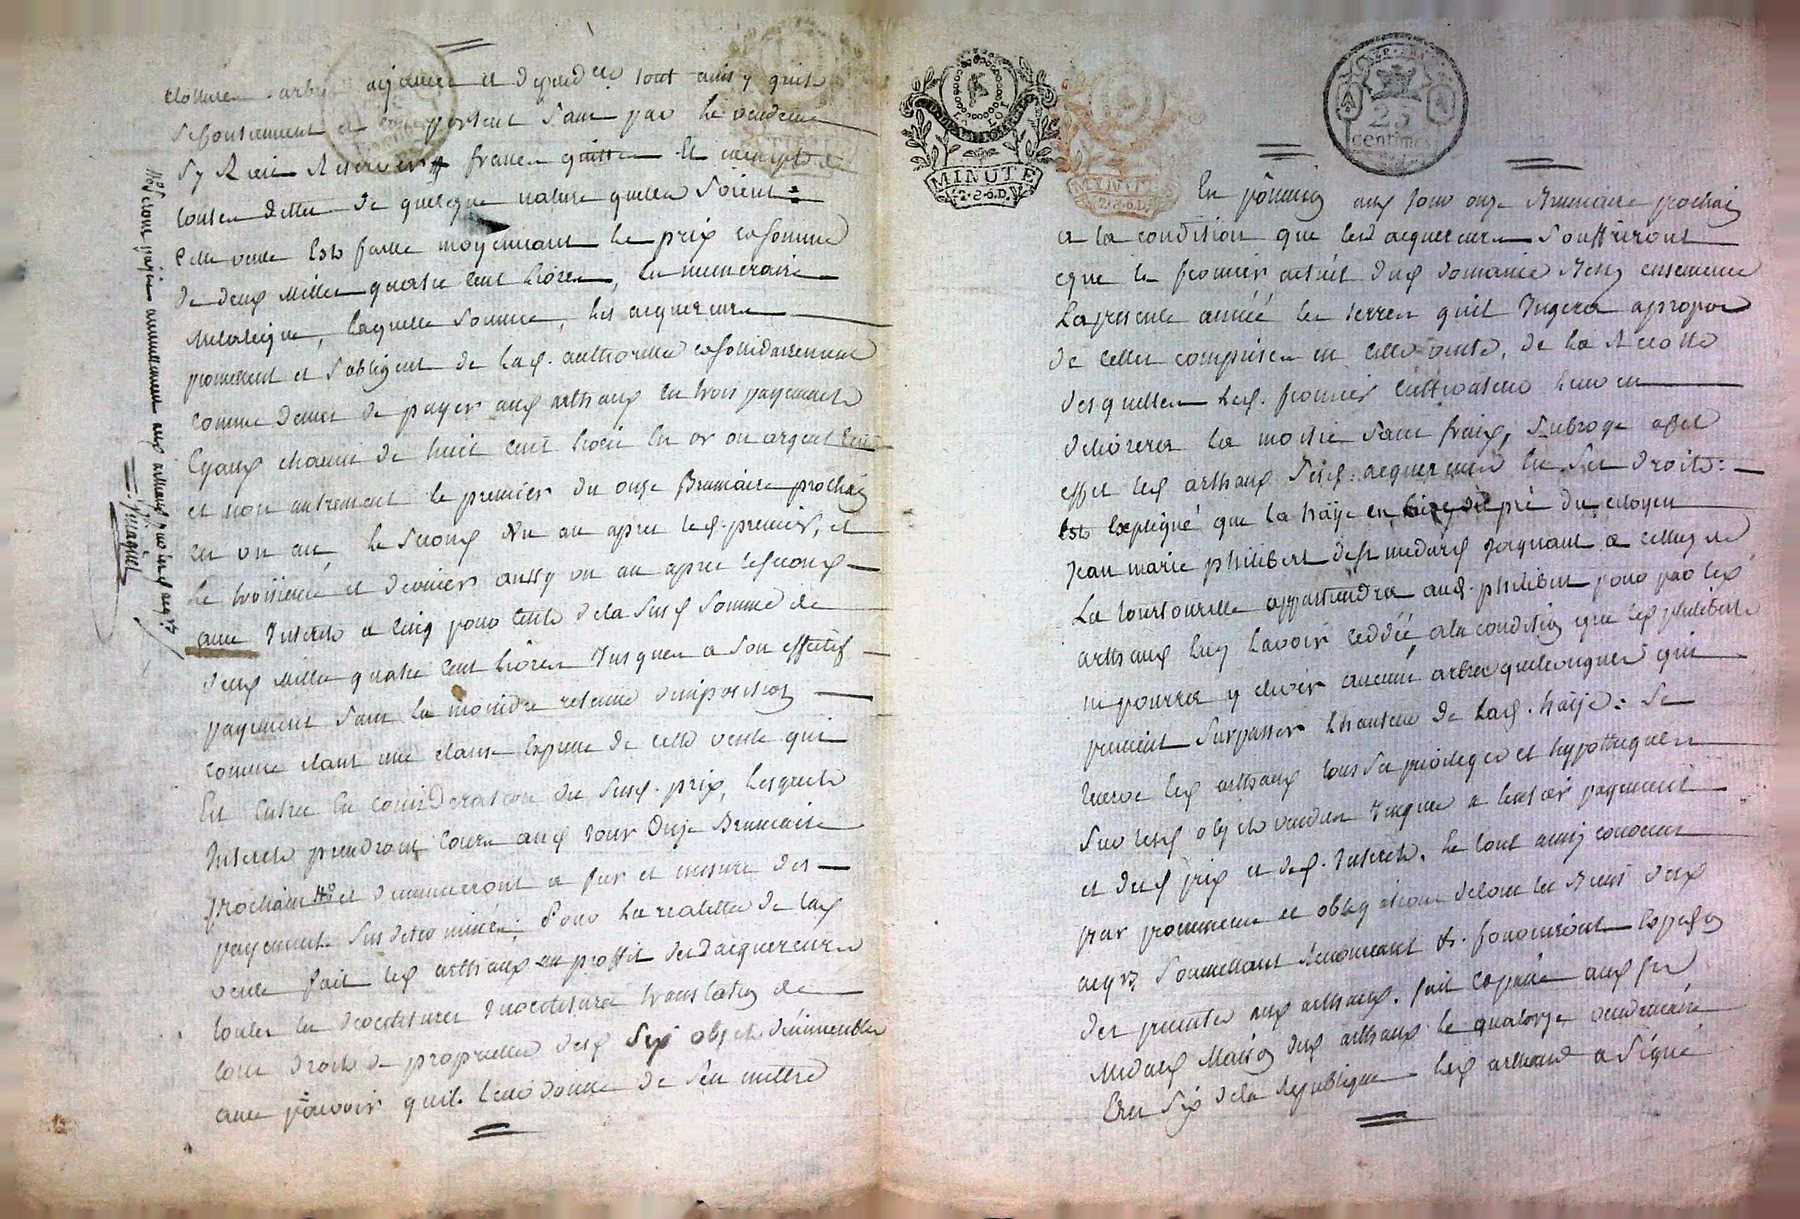 clotures arbres aisances et dependces tout ainsy quils
se contiennent et comportent sans par le vendeur
s'y Rien Reserver # francs quittes Et exempts de
toutes dettes de quelque nature quelles soient :
Cette vente Est faitte moyennant le prix et somme
de deux mille quatre cent livres, en numeraire
metalique, laquelle somme, les acquereurs
promettent et s'obligent de lad. authorité et solidairement
comme dessus de payer aud arthaud en trois payements
Egaux chacun de huit cent livres en or ou argent
et non autrement le premier du onze Brumaire prochain
en un an le second un an apres led. premier, et
le troisieme et dernier aussy un an apres le second
avec Interets a cinq pour cent de la susd somme de
deux mille quatre cent livres Jusques a son effectif
payement sans la moindre retenue d'imposition
comme etant une clause Expresse de cette vente qui
Est Entrée En consideration du susd. prix, lesquels
Interets prendront cours aud jour Onze Brumaire
prochain Nº et diminueront a fur et mesure des
payements susdeterminés; Pour la realitté de lad
vente fait led arthaud au proffit desd acquereurs
toutes les devestitures Investitures translation de
tous droits de proprietté desd six objets d'immeubles
avec pouvoir quil leur donne de s'en mettre
Nº seront payés annuellement aud arthaud par lesd acqrs
En possession aud jour onze Brumaire prochain
a la condition que lesd acquereurs souffriront
que le fermier actuel dud domaine Resty ensemence
La presente année les terres quil Jugera apropos
de celles comprises en cette vente, de la Recolte
desquelles led. fermier cultivateur leur en
delivrera la moitié sans fraix, subroge a cet
effet led arthaud lesd. acquereurs en ses droits :
Est Expliqué que la haÿe en bize dud pré du citoyen
Jean marie philibert de st medard joignant a celluy de
La tourtourelle appartiendra aud. philibert pour par led
arthaud luy L'avoir ceddée, a la condition que led philibert
ne pourra y elever aucuns arbres quelconques qui
puissent surpasser l'hauteur de lad. haÿe : se
reserve led arthaud tous ses privileges et hypotheques
sur lesd objets vendus Jusques a l'entier payement
et dud prix et desd. Interets. le tout ainsy convenu
par promesses et obligations de tous les Biens desd
acqrs soumettant Renonceant &. fourniront Expedon
des presentes aud arthaud. fait et passé aud st
medard Maison dud arthaud le quatorze vendemiaire
L'an six de la Republique led arthaud a signé
REP. FRA.
25
centimes
LA LOI
MINUTE